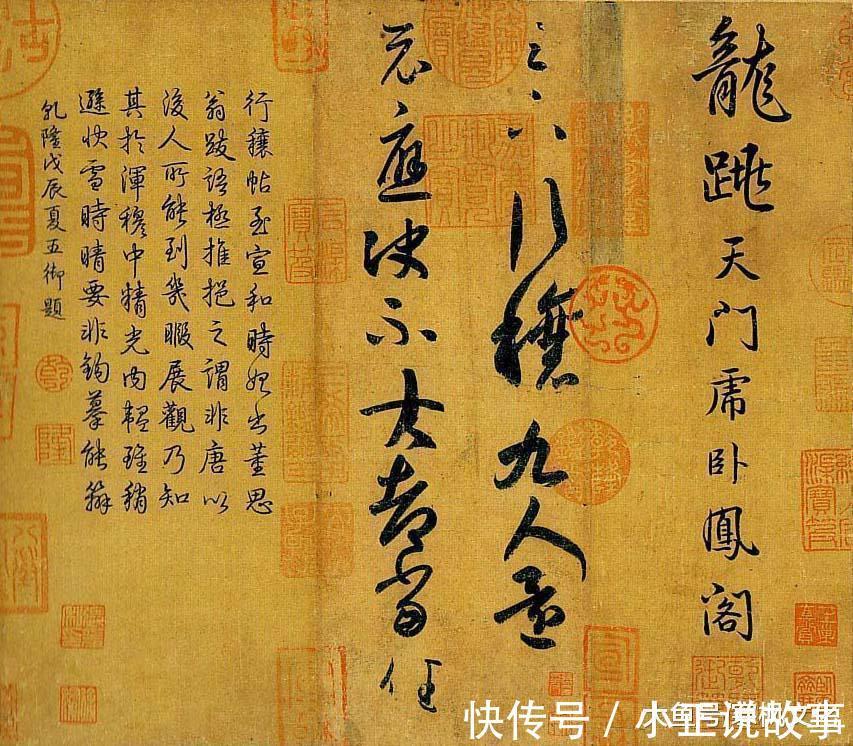 龍跳天門虎臥鳳閣
足下行穰九人還
示應決不大都當佳
行穰帖至宣和時始出董思
翁跋語極推挹之謂非唐以
後人所能到幾暇展觀乃知
其於渾穆中精光內韞雖稍
遜快雪時晴要非鉤摹能辦
乾隆戊辰夏五御題
快传号 / 小正说故事